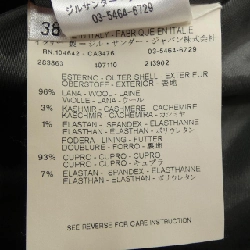 ジルサンダー
03-5464-6729
38
N ITALY-FABRIQUE EN ITALIE
イタリー製 ジル・サンダー・ジャパン株式会社
RN.104642 - CA3476 03-5464-6729
107110 213902
ESTERNO - OUTER SHELL - EXTERIEUR
OBERSTOFF - EXTERIOR
96% LANA - WOOL - LAINE
WOLLE - LANA - ウール
3% KASHMIR - CASHMERE - CACHEMIRE
KASCHMIR - CASHMIRA - カシミヤ
1% ELASTAN - SPANDEX - ELASTHANNE
ELASTHAN - ELASTAN - ポリウレタン
FODERA - LINING - FUTTER
DOUBLURE - FORRO - 裏地
93% CUPRO - CUPRO
CUPRO - CUPRO - キュプラ
7% ELASTAN - SPANDEX - ELASTHANNE
ELASTHAN - ELASTAN - ポリウレタン
SEE REVERSE FOR CARE INSTRUCTION